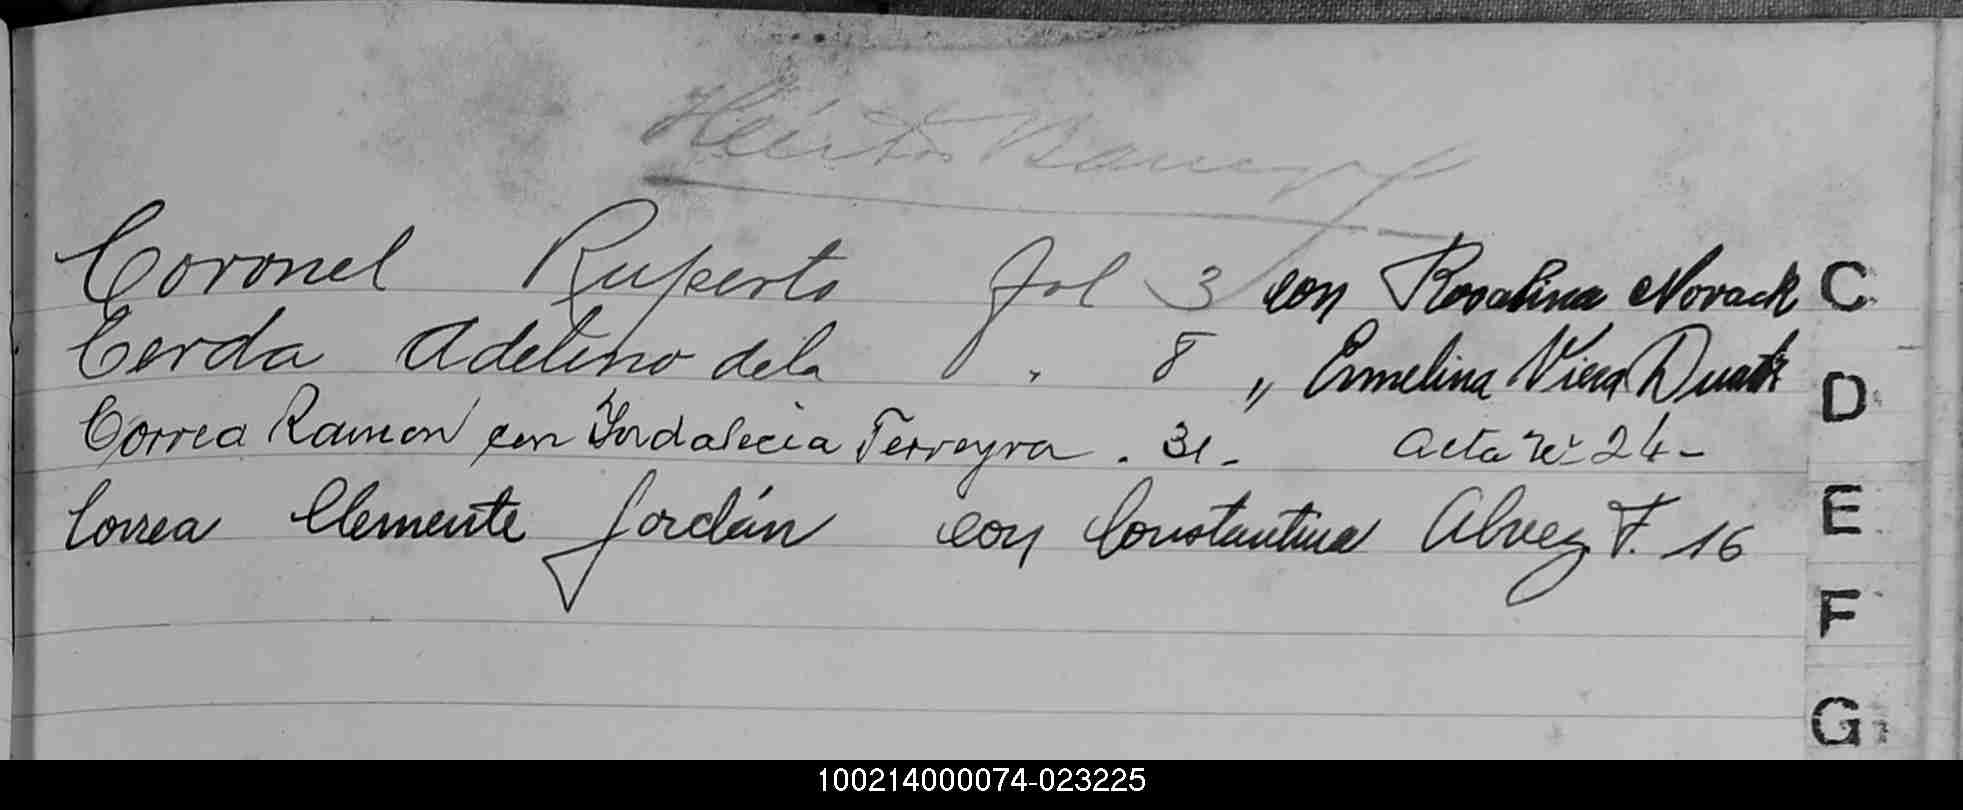 Coronel Ruperto fol 3 con Rosalina Novack C
Cerda Adelino dela " 8 " Ermelina Viera D
Correa Ramon con Yndalecia Ferreyra . 31 - acta Nº 24 -
Correa Clemente Jordán con Constantina Alvez F. 16 E
F
G
100214000074-023225